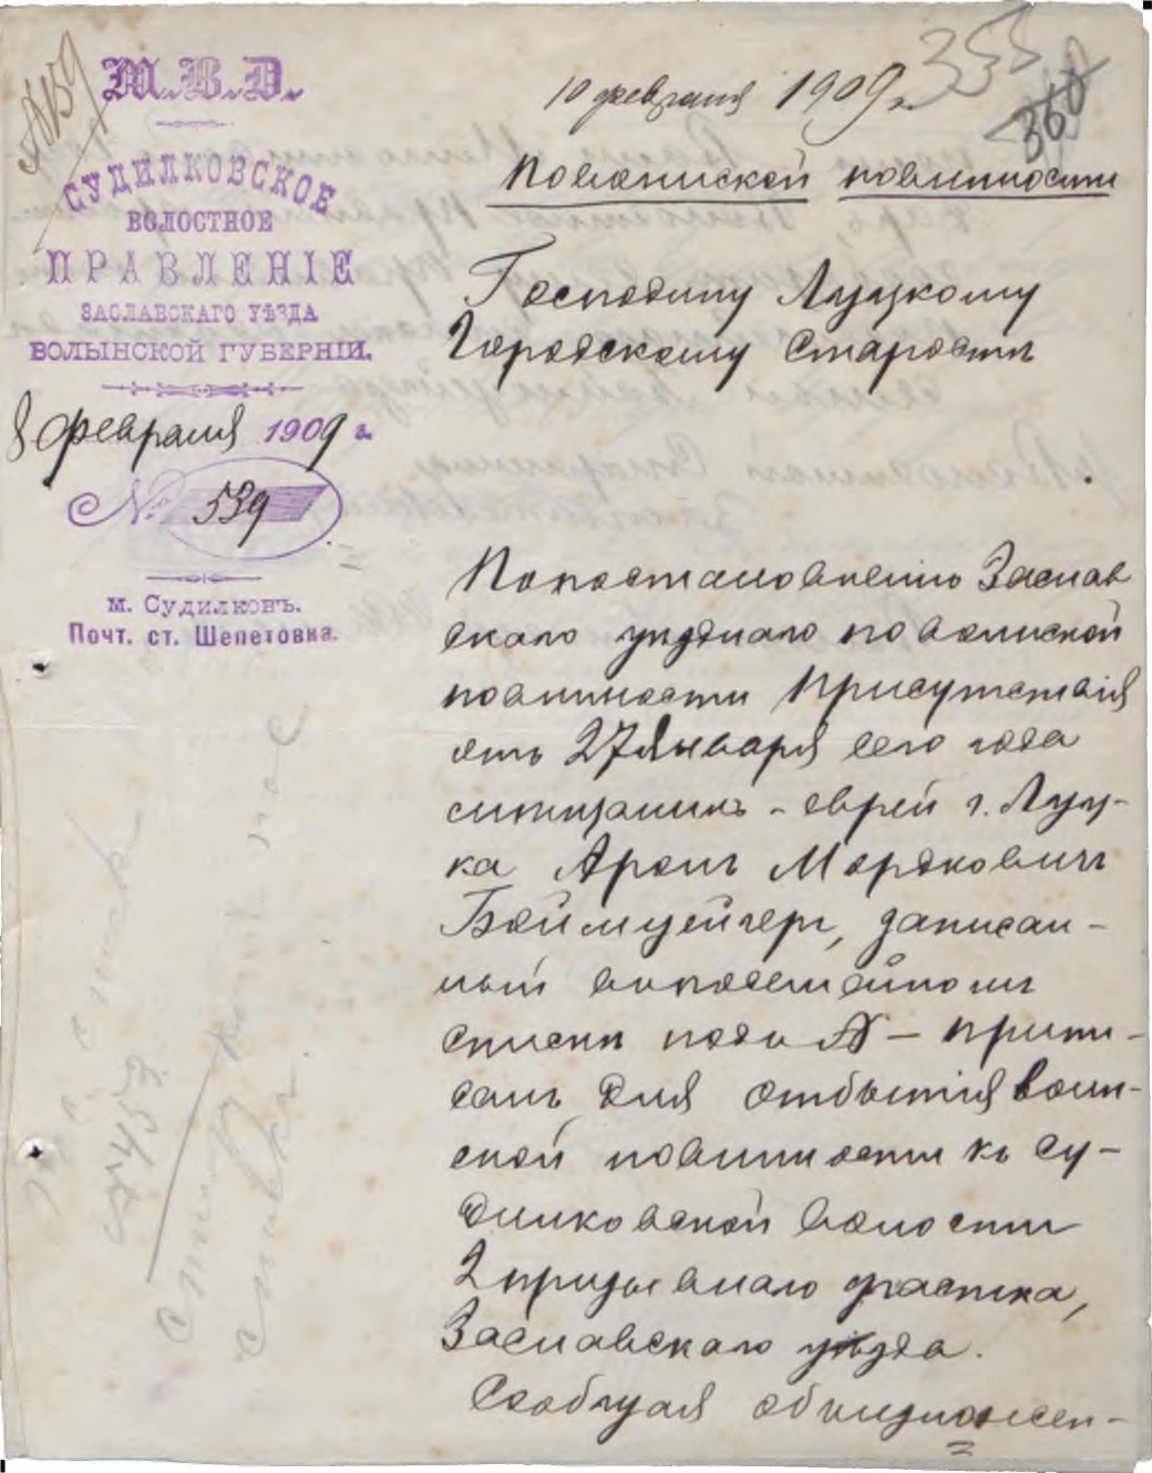 М.В.Д.
СУДИЛКОВСКОЕ
ВОЛОСТНОЕ
ПРАВЛЕНІЕ
ЗАСЛАВСКАГО УѢЗДА
ВОЛЫНСКОЙ ГУБЕРНІИ.
8 февраля 1909 г.
№ 539
м. Судилковъ.
Почт. ст. Шепетовка.
355
360
10 февраля 1909 г.
По воинской повинности
Господину Луцкому
Городскому Старостѣ
По постановленію Заслав
скаго уѣзднаго по воинской
повинности Присутствія
отъ 27 Января сего года
мѣщанинъ - еврей г. Луц-
ка Аронъ Мордковичъ
Боймцейгеръ, записан-
ный въ посемейномъ
спискѣ подъ № — припи-
санъ для отбытія воин-
ской повинности къ Су-
дилковской волости
2 призывнаго участка,
Заславскаго уѣзда.
Сообщая объ изложен-